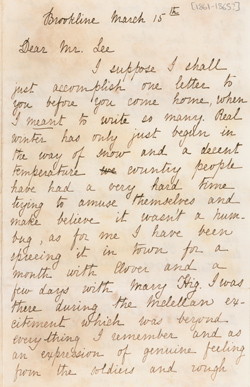 [1861-1865?]
Brookline March 15th
Dear Mr. Lee
I suppose I shall
just accomplish one letter to
you before you come home, when
I meant to write so many. Real
winter has only just begun in
the way of snow and a decent
temperature country people
have had a very hard time
trying to amuse themselves and
make believe it wasn't a hum-
bug, as for me I have been
spending it in town for a
month with Clover and a
few days with Mary Hig. I was
there during the McClellan ex-
citement which was beyond
everything I remember and as
an expression of genuine feeling
from the soldiers and rough